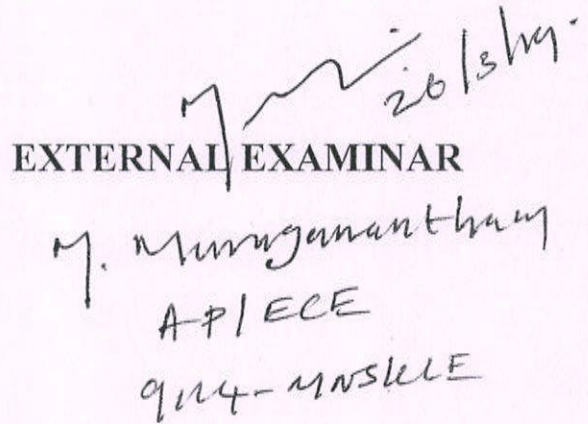 26/3/19.
EXTERNAL EXAMINAR
M. Muruganantham
AP/ECE
9114-MNSKCE